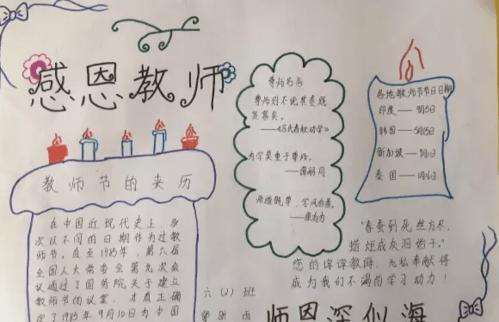 感恩教师
教师节的来历
在中国近现代史上，多
次以不同的日期作为过教
师节。直至1985年，第六届
全国人大常委会第九次会
议通过了国务院关于建立
教师节的议案，才真正确
定了1985年9月10日为中国
六（2）班
尊师名言
尊师则不论其贵贱
贫富矣。
——《吕氏春秋劝学》
为学莫重于尊师。
——谭嗣同
师道既尊，学风自善。
——康有为
各地教师节日日期
印度——9月5日
韩国——5月15日
新加坡——9月1日
泰国——1月16日
“春蚕到死丝方尽，
蜡炬成灰泪始干”
您的谆谆教诲，无私奉献将
成为我们不竭的学习动力！
师恩深似海